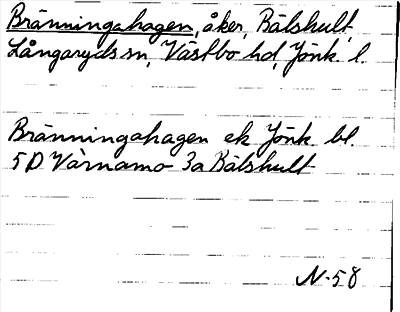 Bränningahagen, åker, Bälshult,
Långaryds sn, Västbo hd, Jönk. l.
Bränningahagen ek Jönk. bl.
5D Värnamo 3a Bälshult
N-58